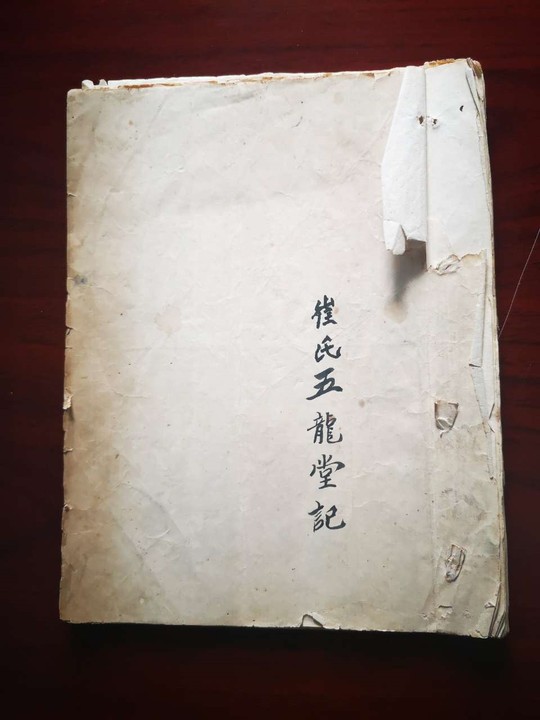 崔氏五龍堂記